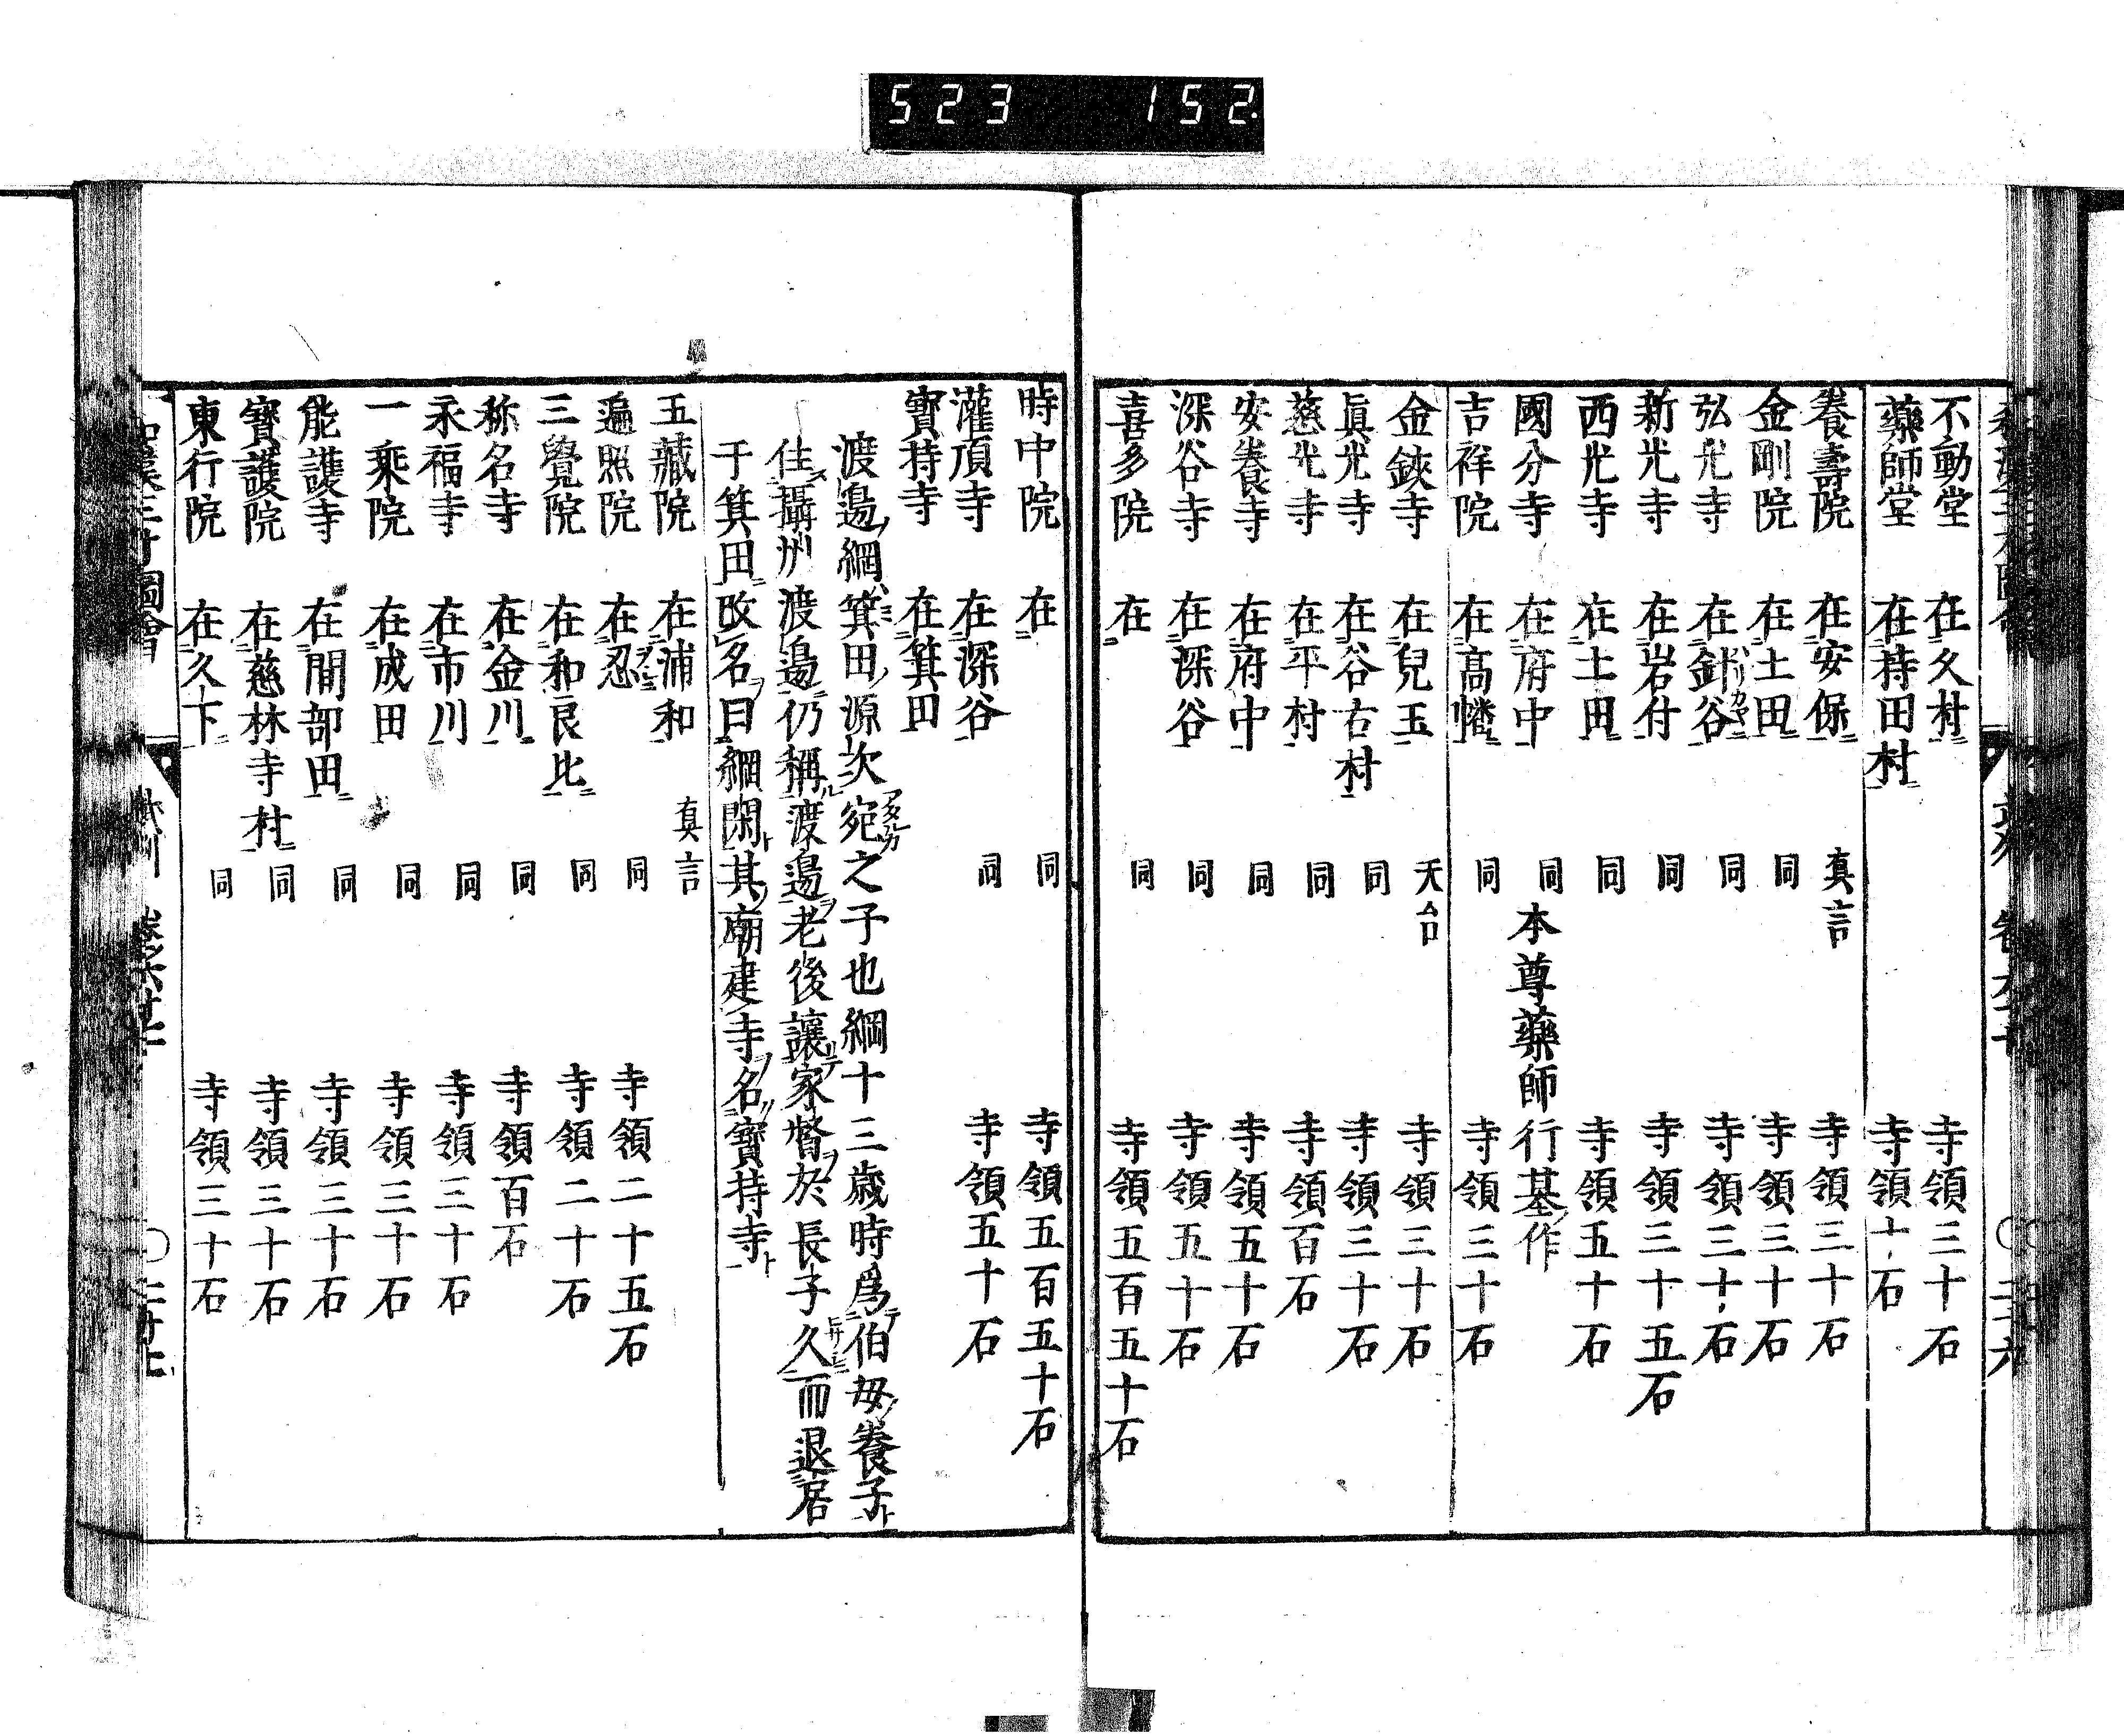 523 152.
不動堂 在久村 寺領三十石
藥師堂 在持田村 寺領十石
養壽院 在安保 真言 寺領三十石
金剛院 在土田 同 寺領三十石
弘光寺 在針谷 同 寺領三十石
新光寺 在岩付 同 寺領三十五石
西光寺 在土田 同 寺領五十石
國分寺 在府中 同 本尊藥師行基作
吉祥院 在高幡 同 寺領三十石
金鋏寺 在兒玉 天台 寺領三十石
眞光寺 在谷古村 同 寺領三十石
慈光寺 在平村 同 寺領百石
安養寺 在府中 同 寺領五十石
深谷寺 在深谷 同 寺領五十石
喜多院 在 同 寺領五百五十石
時中院 在 同 寺領五百五十石
灌頂寺 在深谷 同 寺領五十石
寳持寺 在箕田
渡邉綱箕田源次宛之子也綱十三歳時爲伯母養子
住攝州渡邉仍稱渡邉老後讓家督於長子久而退居
于箕田改名曰綱閑其廟建寺名寳持寺
玉藏院 在浦和 真言
遍照院 在忍 同 寺領二十五石
三覺院 在和良比 同 寺領二十石
称名寺 在金川 同 寺領百石
永福寺 在市川 同 寺領三十石
一乘院 在成田 同 寺領三十石
能護寺 在間部田 同 寺領三十石
寳護院 在慈林寺村 同 寺領三十石
東行院 在久下 同 寺領三十石